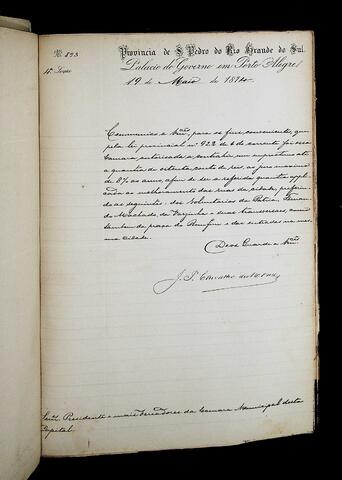 N. 593
4ª Secção
Provincia de S. Pedro do Rio Grande do Sul.
Palacio do Governo em Porto Alegre,
12 de Maio de 1874
Communico a Vmcês, para os fins convenientes, que
pela lei provincial nº 922 de 6 do corrente foi essa
Camara autorisada a contrahir um emprestimo até
a quantia de oitenta contos de reis, ao juro maximo
de 8% ao anno, afim de ser a referida quantia appli-
cada ao melhoramento das ruas da cidade, preferin-
do as seguintes: dos Voluntarios da Patria,
do Machado, da Varzinha e suas transversaes, assim
tambem da praça do Bomfim e das entradas na mes-
ma cidade.
Deos Guarde a Vmcês
J. P. Carvalho de Moraes
Senrs. Presidente e mais Vereadores da Camara Municipal desta
Capital.